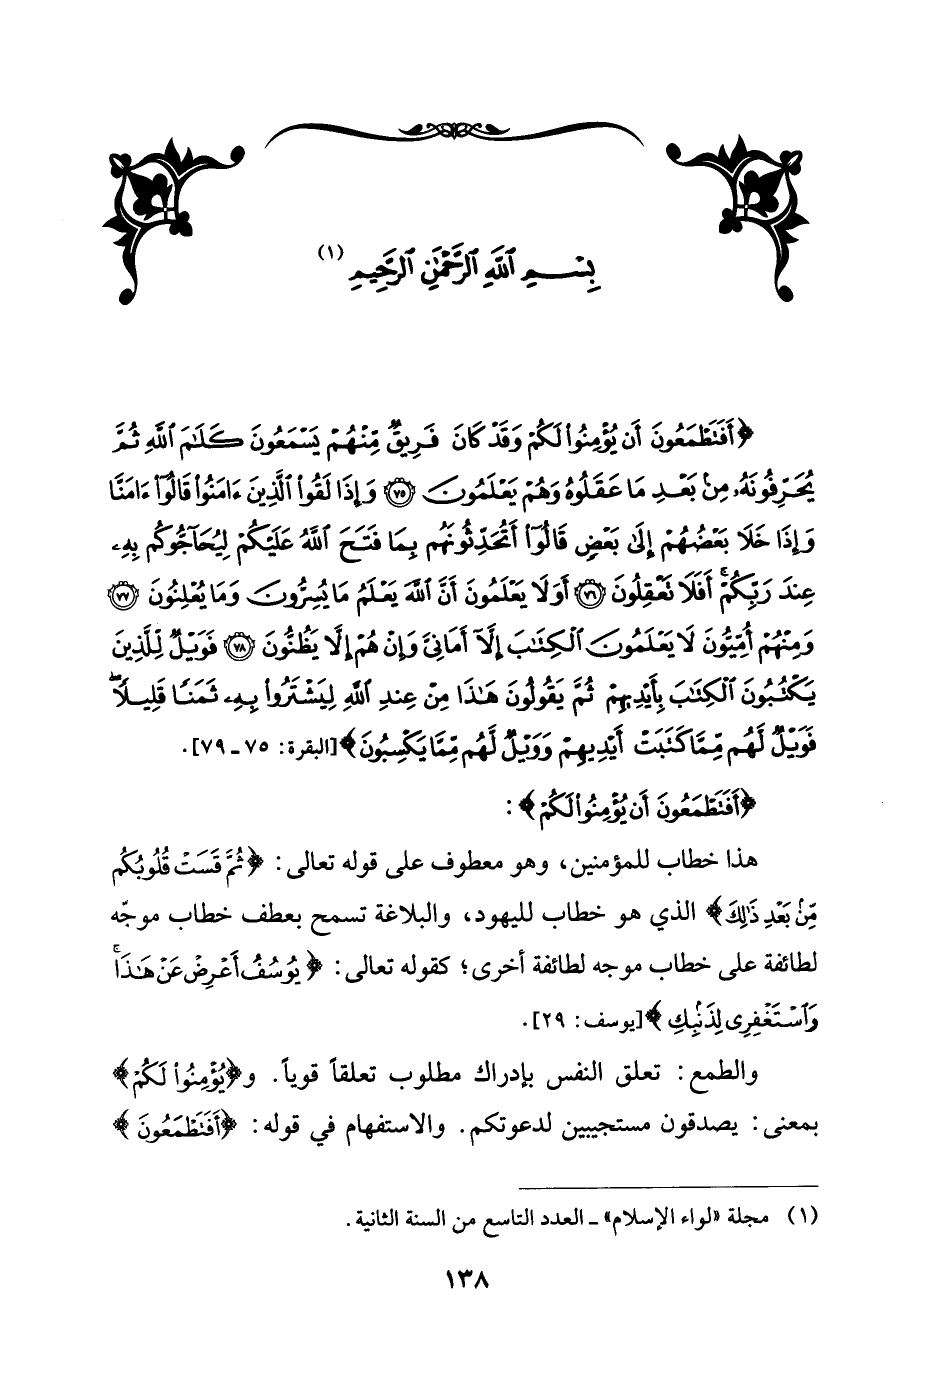 بِسْمِ ٱللَّهِ ٱلرَّحْمَٰنِ ٱلرَّحِيمِ (١)
﴿أَفَتَطْمَعُونَ أَن يُؤْمِنُوا۟ لَكُمْ وَقَدْ كَانَ فَرِيقٌ مِّنْهُمْ يَسْمَعُونَ كَلَٰمَ ٱللَّهِ ثُمَّ
يُحَرِّفُونَهُۥ مِنۢ بَعْدِ مَا عَقَلُوهُ وَهُمْ يَعْلَمُونَ ﴿٧٥﴾ وَإِذَا لَقُوا۟ ٱلَّذِينَ ءَامَنُوا۟ قَالُوٓا۟ ءَامَنَّا
وَإِذَا خَلَا بَعْضُهُمْ إِلَىٰ بَعْضٍ قَالُوٓا۟ أَتُحَدِّثُونَهُم بِمَا فَتَحَ ٱللَّهُ عَلَيْكُمْ لِيُحَآجُّوكُم بِهِۦ
عِندَ رَبِّكُمْ ۚ أَفَلَا تَعْقِلُونَ ﴿٧٦﴾ أَوَلَا يَعْلَمُونَ أَنَّ ٱللَّهَ يَعْلَمُ مَا يُسِرُّونَ وَمَا يُعْلِنُونَ ﴿٧٧﴾
وَمِنْهُمْ أُمِّيُّونَ لَا يَعْلَمُونَ ٱلْكِتَٰبَ إِلَّآ أَمَانِىَّ وَإِنْ هُمْ إِلَّا يَظُنُّونَ ﴿٧٨﴾ فَوَيْلٌ لِّلَّذِينَ
يَكْتُبُونَ ٱلْكِتَٰبَ بِأَيْدِيهِمْ ثُمَّ يَقُولُونَ هَٰذَا مِنْ عِندِ ٱللَّهِ لِيَشْتَرُوا۟ بِهِۦ ثَمَنًا قَلِيلًا ۖ
فَوَيْلٌ لَّهُم مِّمَّا كَتَبَتْ أَيْدِيهِمْ وَوَيْلٌ لَّهُم مِّمَّا يَكْسِبُونَ﴾ [البقرة: ٧٥ ـ ٧٩].
﴿أَفَتَطْمَعُونَ أَن يُؤْمِنُوا۟ لَكُمْ﴾:
هذا خطاب للمؤمنين، وهو معطوف على قوله تعالى: ﴿ثُمَّ قَسَتْ قُلُوبُكُم
مِّنۢ بَعْدِ ذَٰلِكَ﴾ الذي هو خطاب لليهود، والبلاغة تسمح بعطف خطاب موجّه
لطائفة على خطاب موجه لطائفة أخرى؛ كقوله تعالى: ﴿يُوسُفُ أَعْرِضْ عَنْ هَٰذَا ۚ
وَٱسْتَغْفِرِى لِذَنۢبِكِ﴾ [يوسف: ٢٩].
والطمع: تعلق النفس بإدراك مطلوب تعلقاً قوياً. و﴿يُؤْمِنُوا۟ لَكُمْ﴾
بمعنى: يصدقون مستجيبين لدعوتكم. والاستفهام في قوله: ﴿أَفَتَطْمَعُونَ﴾
(١) مجلة «لواء الإسلام» ـ العدد التاسع من السنة الثانية.
١٣٨